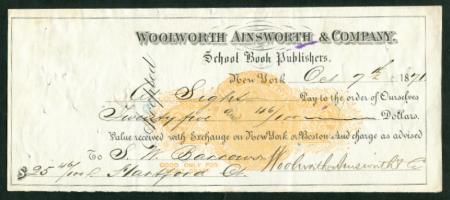 WOOLWORTH AINSWORTH & COMPANY.
School Book Publishers.
New York Oct 7th 1871
Accepted
At Sight Pay to the order of Ourselves
Twenty five and 46/100 Dollars.
Value received with Exchange on New York or Boston And charge as advised
To S. W. Barrows Woolworth Ainsworth & Co
$25 46/100 Hartford Ct.
GOOD ONLY FOR